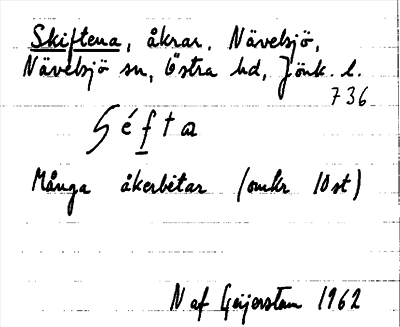 Skiftena, åkrar. Nävelsjö,
Nävelsjö sn, Östra hd, Jönk. l.
736
Många åkerbitar (omkr 10 st)
N af Geijerstam 1962